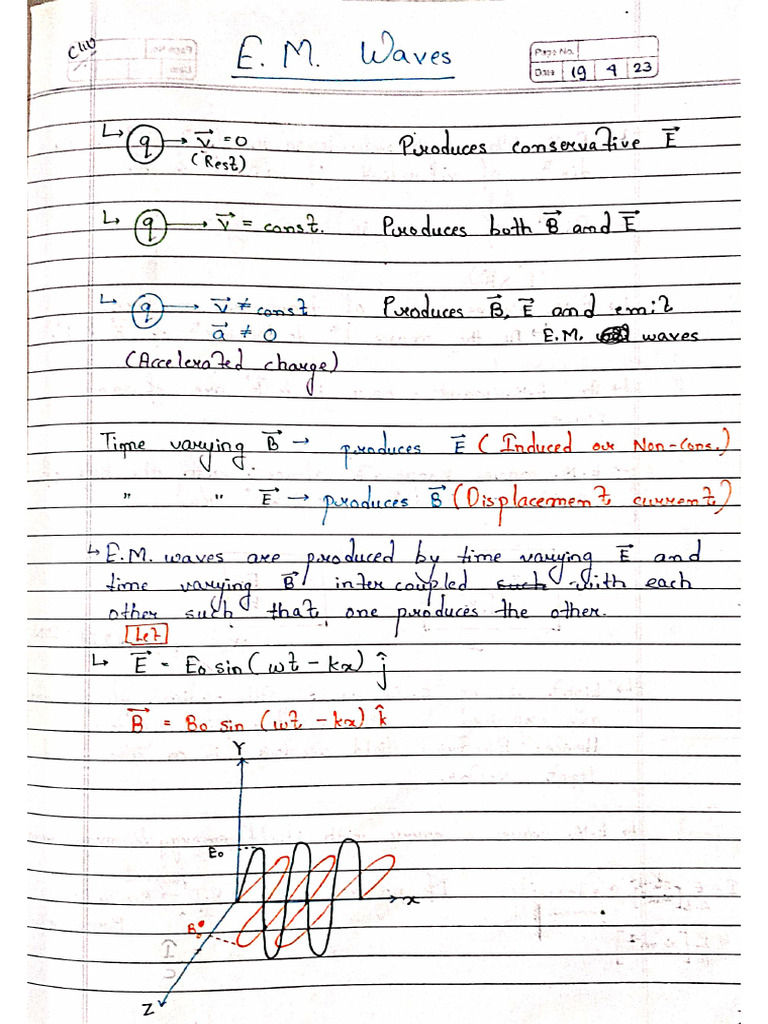 CW
E.M. Waves
Page No.
Date 19 4 23
↳ q → v⃗ = 0 Produces conservative E⃗
(Rest)
↳ q → v⃗ = const. Produces both B⃗ and E⃗
↳ q → v⃗ ≠ const. Produces B⃗, E⃗ and emit
a⃗ ≠ 0 E.M. waves
(Accelerated charge)
Time varying B⃗ → produces E⃗ (Induced or Non-cons.)
" " E⃗ → produces B⃗ (Displacement current)
↳ E.M. waves are produced by time varying E⃗ and
time varying B⃗ inter coupled with each
other such that one produces the other.
Let
↳ E⃗ = E₀ sin(ωt - kx) ĵ
B⃗ = B₀ sin (ωt - kx) k̂
Y
E₀
x
B₀
Z